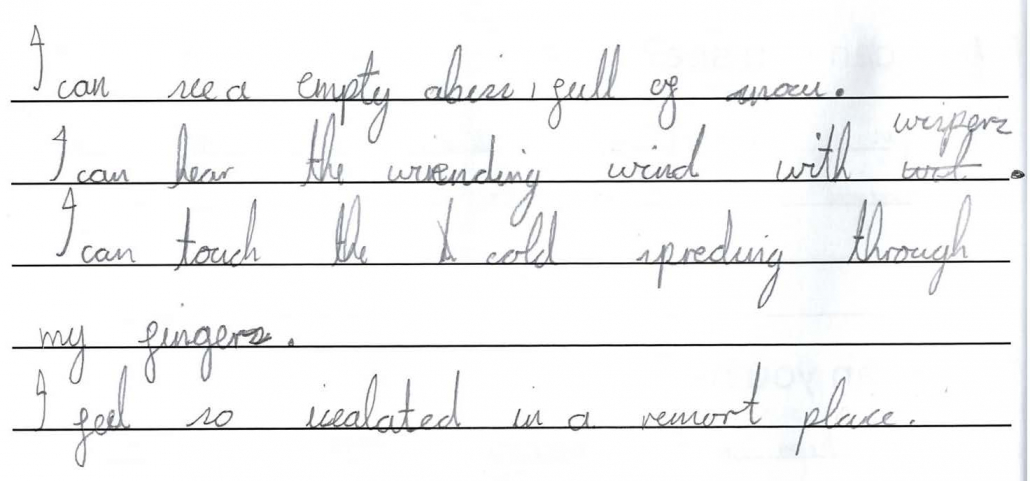 I can see a empty abiss, full of snow.
I can hear the wending wind with wispers.
I can touch the cold spreding through
my fingers.
I feel so icealated in a remort place.